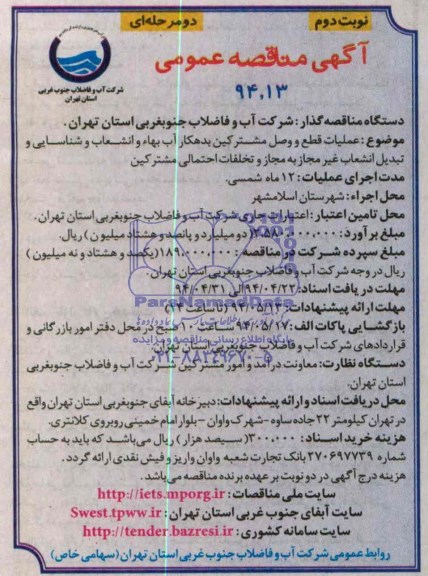 نوبت دوم
دو مرحله‌ای
شرکت آب و فاضلاب جنوب غربی
استان تهران
آگهی مناقصه عمومی
۹۴.۱۳
دستگاه مناقصه گذار: شرکت آب و فاضلاب جنوبغربی استان تهران.
موضوع: عملیات قطع و وصل مشترکین بدهکار آب بهاء و انشعاب و شناسایی و
تبدیل انشعاب غیر مجاز به مجاز و تخلفات احتمالی مشترکین
مدت اجرای عملیات: ۱۲ ماه شمسی.
محل اجراء: شهرستان اسلامشهر
محل تامین اعتبار: اعتبارات جاری شرکت آب و فاضلاب جنوبغربی استان تهران.
مبلغ برآورد: ۲.۵۸۰.۰۰۰.۰۰۰ (دو میلیارد و پانصد و هشتاد میلیون) ریال.
مبلغ سپرده شرکت در مناقصه: ۱۸۹.۰۰۰.۰۰۰ (یکصد و هشتاد و نه میلیون)
ریال در وجه شرکت آب و فاضلاب جنوبغربی استان تهران.
مهلت دریافت اسناد: ۹۴/۰۴/۲۲ الی ۹۴/۰۴/۳۱
مهلت ارائه پیشنهادات: ۹۴/۰۵/۱۴ (تا ساعت ۱۴)
بازگشایی پاکات الف: ۹۴/۰۵/۱۷ ساعت ۱۰ صبح در محل دفتر امور بازرگانی و
قراردادهای شرکت آب و فاضلاب جنوبغربی استان تهران.
دستگاه نظارت: معاونت درآمد و امور مشترکین شرکت آب و فاضلاب جنوبغربی
استان تهران.
محل دریافت اسناد و ارائه پیشنهادات: دبیرخانه آبفای جنوبغربی استان تهران واقع
در تهران کیلومتر ۲۲ جاده ساوه - شهرک واوان - بلوار امام خمینی روبروی کلانتری.
هزینه خرید اسناد: ۳۰۰.۰۰۰ (سیصد هزار) ریال می‌باشد که باید به حساب
شماره ۲۷۰۶۹۷۷۳۹ بانک تجارت شعبه واوان واریز و فیش نقدی ارائه گردد.
هزینه درج آگهی در دو نوبت بر عهده برنده می‌باشد.
سایت ملی مناقصات: http://iets.mporg.ir
سایت آبفای جنوب غربی استان تهران: Swest.tpww.ir
سایت سامانه کشوری: http://tender.bazresi.ir
روابط عمومی شرکت آب و فاضلاب جنوب غربی استان تهران (سهامی خاص)
ParsNamadData
پایگاه اطلاع رسانی مناقصه و مزایده
۰۲۱-۸۸۳۴۹۶۷۰-۵